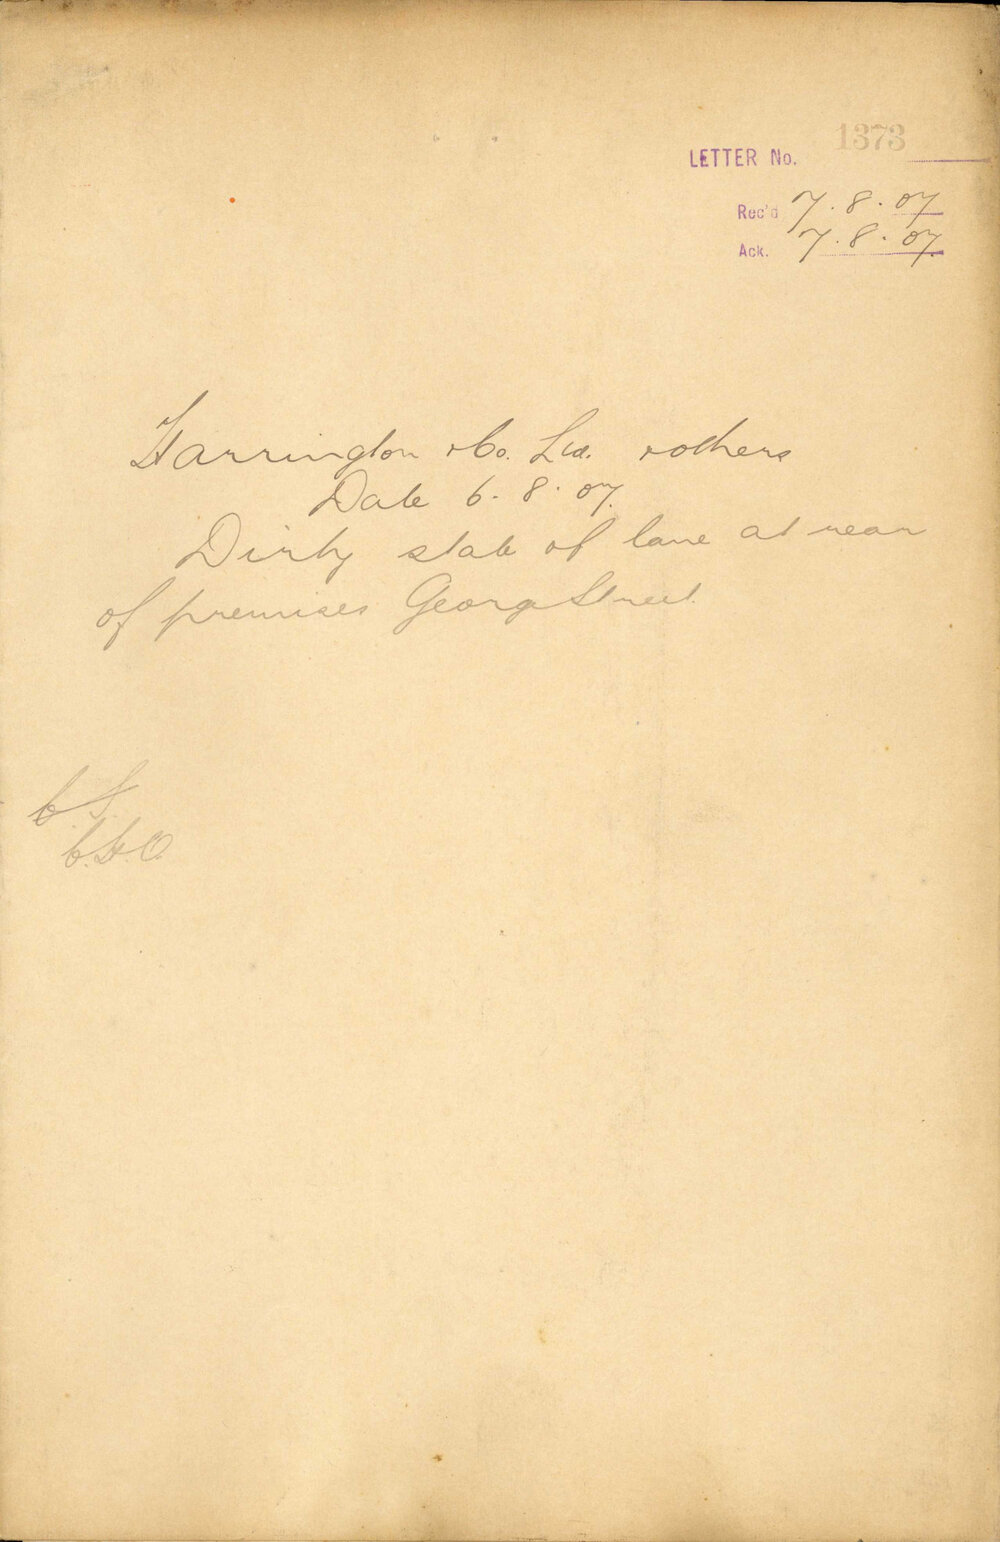 LETTER No. 1373
Rec'd 7.8.07
Ack. 7.8.07.
Harrington & Co. Ltd. & others
Date 6.8.07.
Dirty state of lane at rear
of premises George Street.
C.H.O.